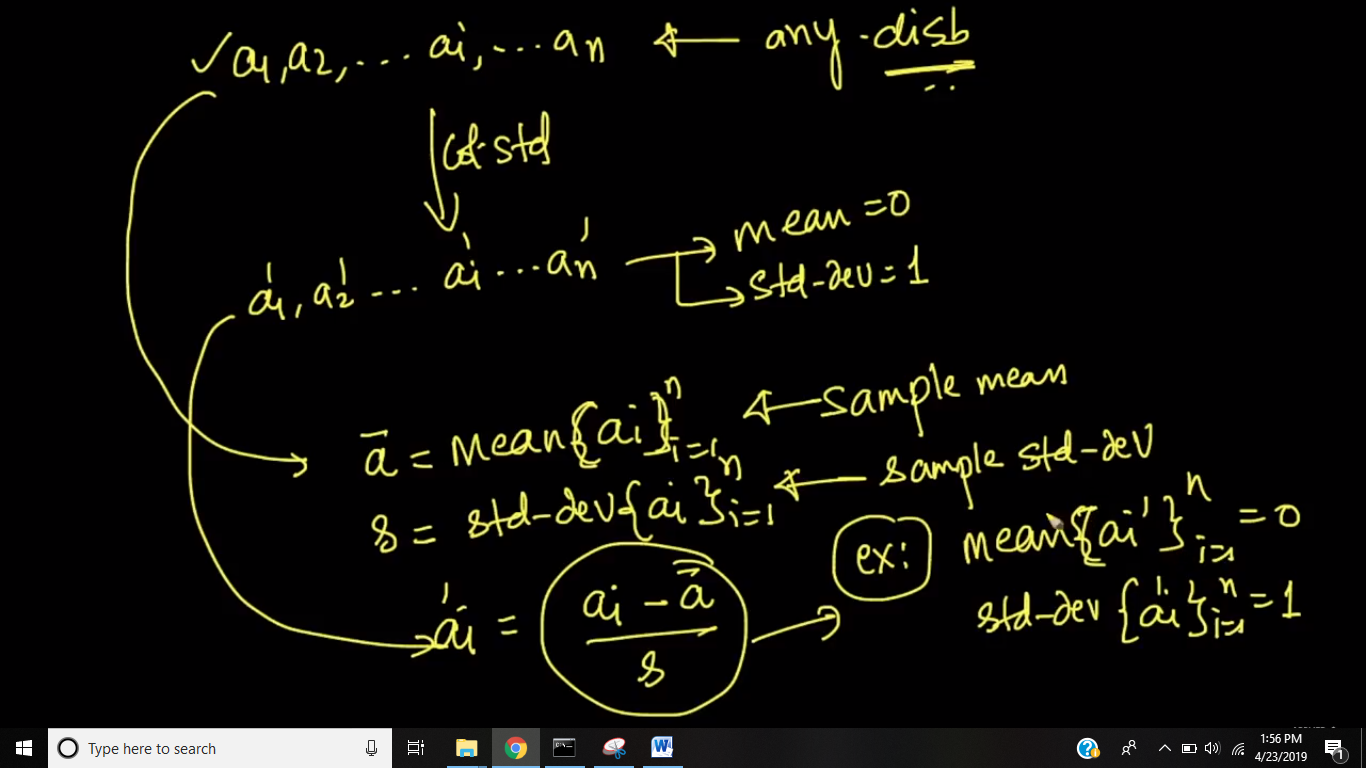 ✓ a₁, a₂, ... aᵢ, ... aₙ ← any disb
col-std
a₁', a₂' ... aᵢ' ... aₙ' → mean = 0
→ std-dev = 1
ā = mean{aᵢ}ⁿᵢ₌₁ ← sample mean
s = std-dev{aᵢ}ⁿᵢ₌₁ ← sample std-dev
aᵢ' = (aᵢ - ā) / s
ex: mean{aᵢ'}ⁿᵢ₌₁ = 0
std-dev{aᵢ'}ⁿᵢ₌₁ = 1
Type here to search
1:56 PM
4/23/2019
1